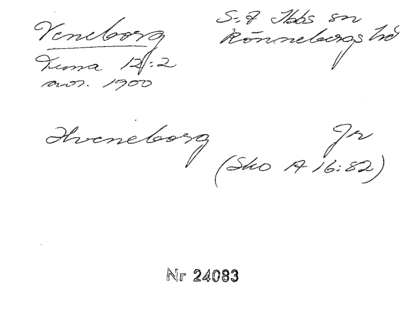 Veneborg
S:t Ibbs sn
Rönnebergs hd
Duma 12:2
avs. 1900
Hveneborg Jr
(Sko A 16:82)
Nr 24083